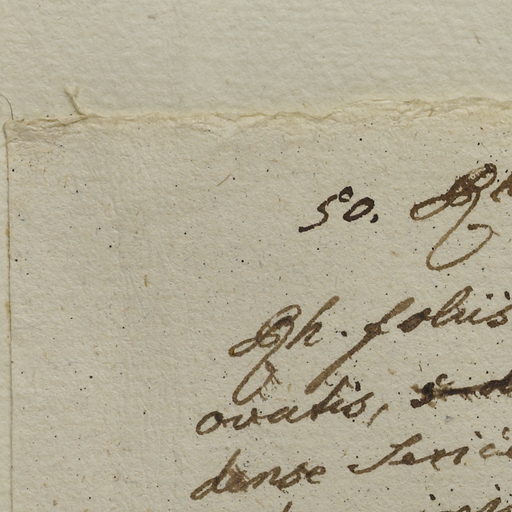 50. Rh
Rh. foliis
ovatis,
dense serici